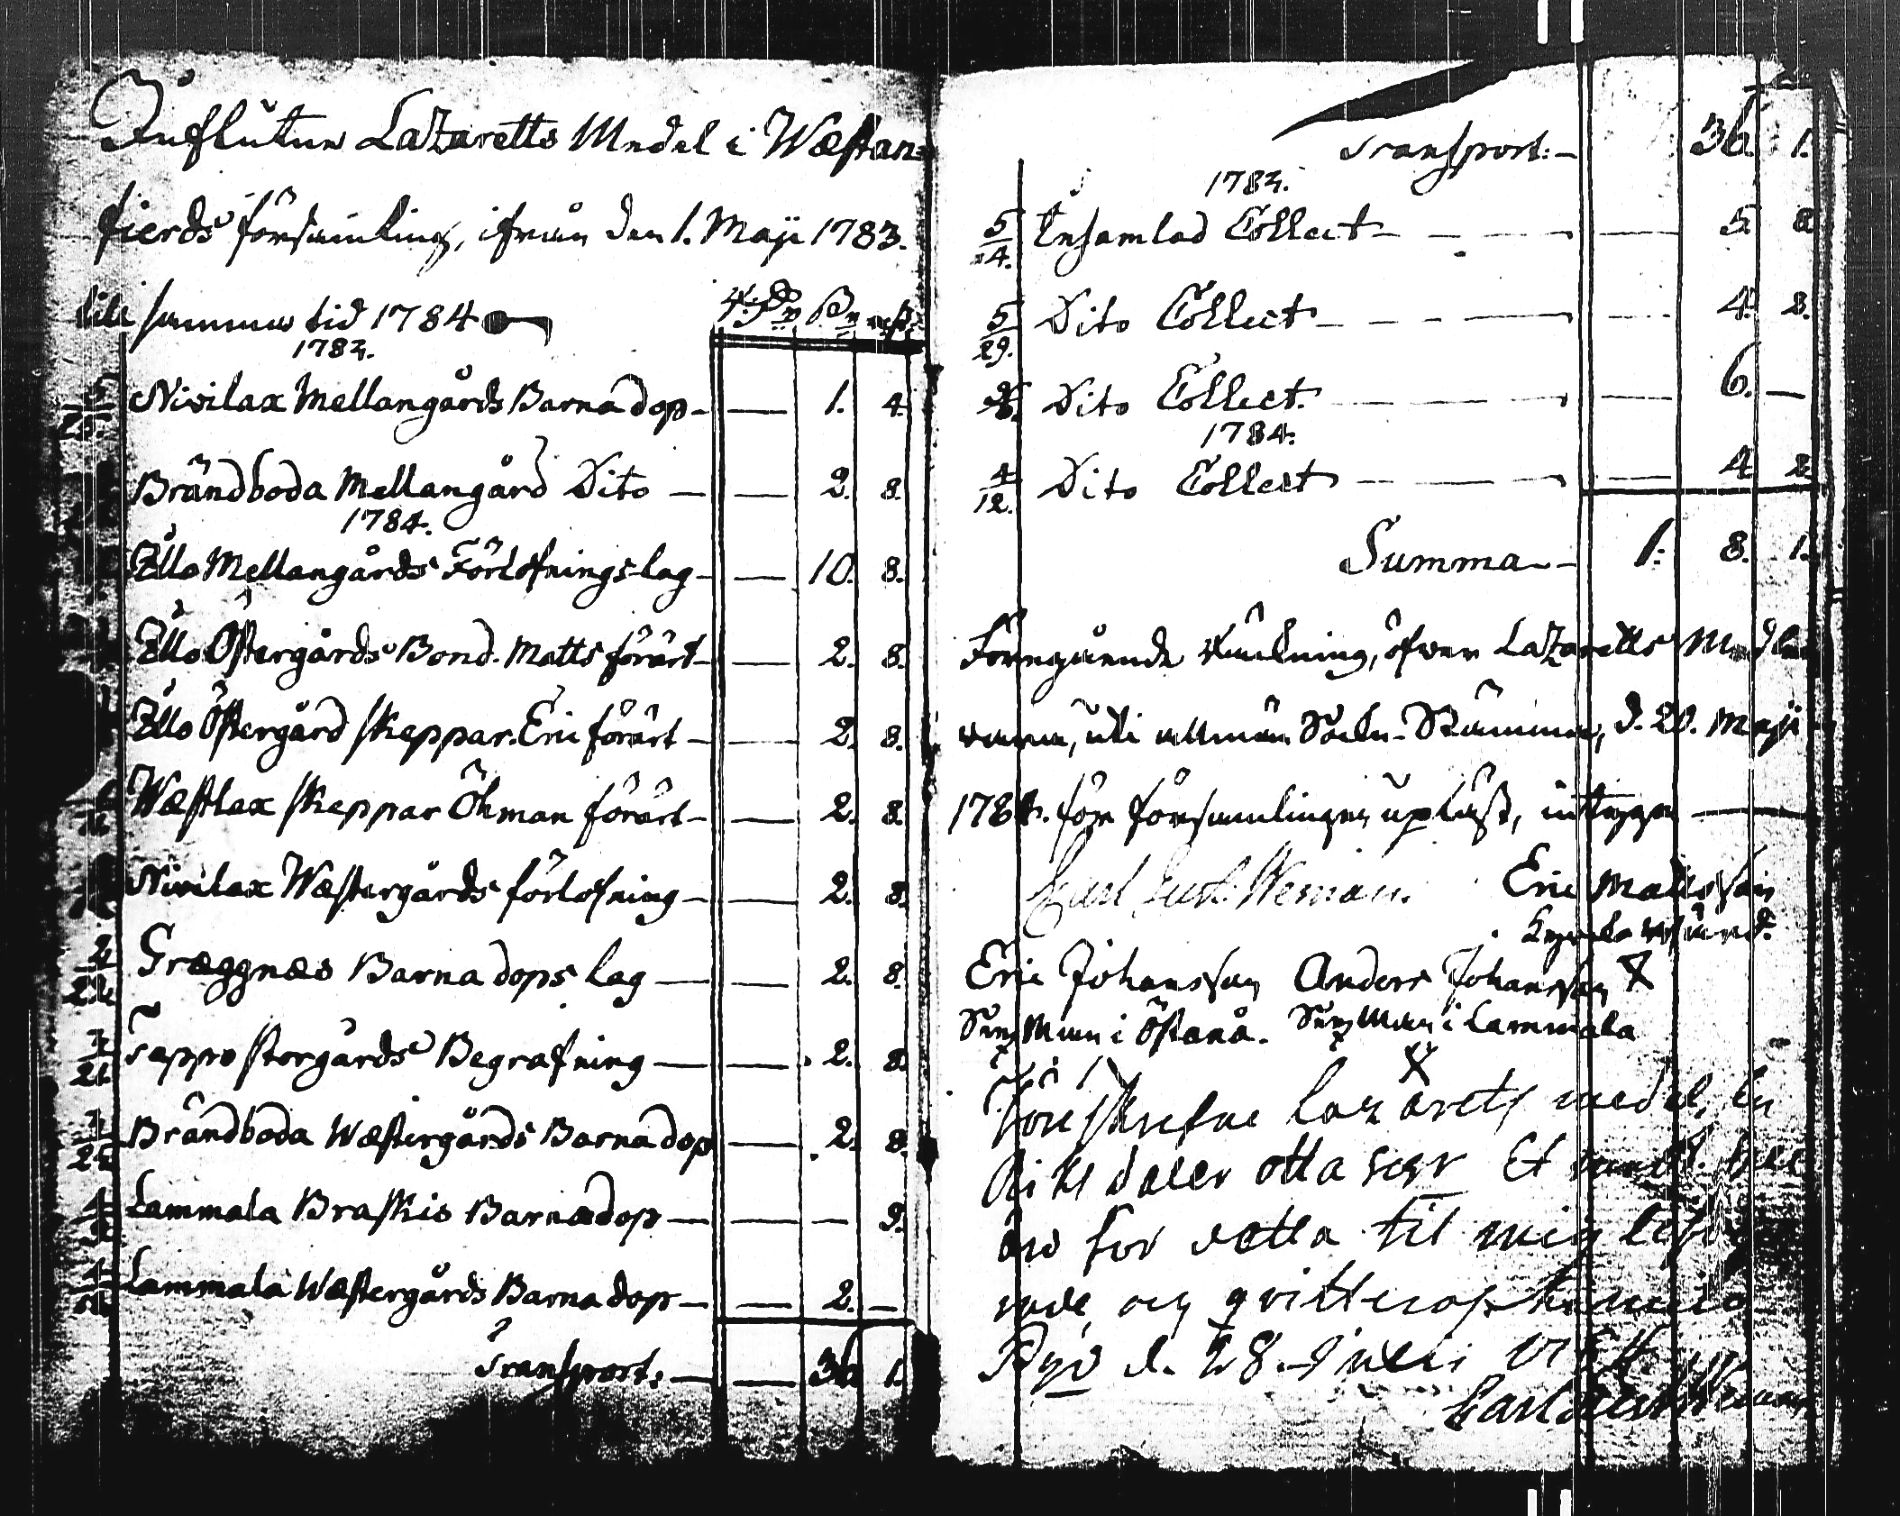 Influtne Lazaretts Medel i Wæstan=
fierds församling, ifrån den 1. Maji 1783.
till samma tid 1784
1783.
Nivilax Mellangårds Barnadop - — 1. 4.
Brändboda Mellangård Dito — — 2. 8.
1784.
Illo Mellangårds Förlofningslag - — 10. 8.
Illo Östergårds Bond. Matts förärt - — 2. 8.
Illo Östergård skeppar. Eric förärt - — 2. 8.
Wæstlax skeppar Öhman förärt - — 2. 8.
Nivilax Wæstergårds förlofning - — 2. 8.
Græggnæs Barnadopslag — — 2. 8.
Tappo Storgårds Begrafning — — 2. 8.
Brändboda Wæstergårds Barnadop — 2. 8.
Lammala Braskis Barnadop — — — 9.
Lammala Wæstergårds Barnadop — — 2. —
Transport: — — 36. 1.
Transport: — 36. 1.
1783.
5/4. Insamlad Collect — 5. 8
5/29. Dito Collect — 4. 8.
Dito Collect. — 6. —
1784.
4/12. Dito Collect — 4 8
Summa — 1. 8. 1.
Föregående Räkning, öfwer Lazaretts Medlen
wara, uti allmän Sockn-Stämma, d. 20. Maji
1784. för församlingen upläst, intyga —
Carl Gust. Weman. Eric Mattsson
Kyrckowärd.
Eric Johansson Anders Johansson X
Sexman i Östanå. Sexman i Lammala
X
Föreskrefne lazarets medel, En
Riksdaler otta ss: Et rundst. blef
fvo for detta til mig lefve
rade, och qvitteras Kimito
Byö d. 28. Junii 1784.
Carl Gust Weman